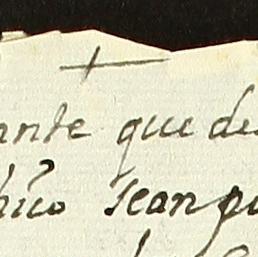 ante que de
hizo sean pa